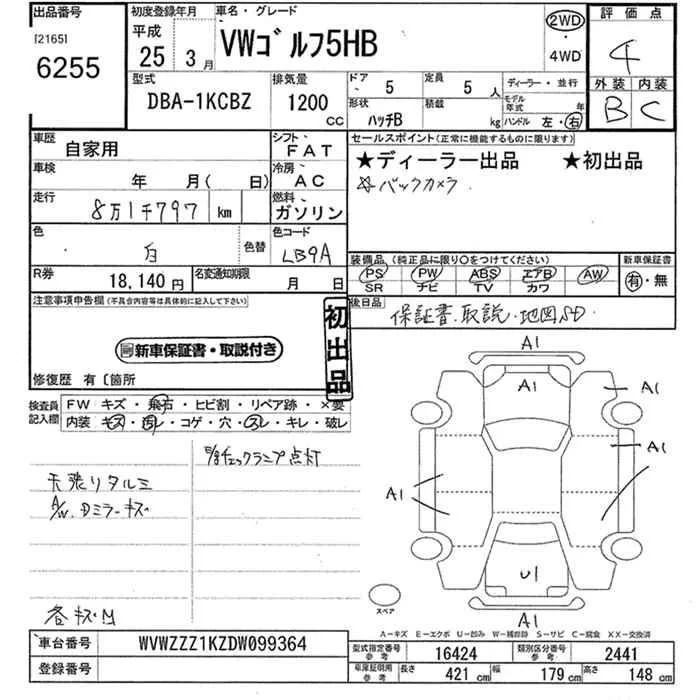 出品番号
[2165]
6255
初度登録年月
平成
25 3月
車名・グレード
VWゴルフ5HB
2WD
・
4WD
評価点
4
外装 内装
B C
型式
DBA-1KCBZ
排気量
1200
CC
ドア
5
定員
5 人
形状
ハッチB
積載
kg
ディーラー・並行
モデル年式 年
ハンドル 左・右
車歴
自家用
シフト
FAT
車検
年 月( 日)
冷房
AC
走行
8万1千797 km
燃料
ガソリン
色
白
色替
色コード
LB9A
R券
18,140円
名変通知期限
月 日
セールスポイント(正常に機能するものに限ります)
★ディーラー出品 ★初出品
☆バックカメラ
装備品(純正品に限り○をつけてください)
PS PW ABS エアB AW
SR ナビ TV カワ
新車保証書
有・無
後日品
保証書、取説・地図SD
注意事項申告欄(不具合内容等は具体的に記入して下さい)
新車保証書・取説付き
初出品
修復歴 有〔箇所
検査員記入欄
FW キズ・飛石・ヒビ割・リペア跡・×要
内装 キズ・汚レ・コゲ・穴・スレ・キレ・破レ
チェックランプ点灯
天張りタルミ
A/W、Dミラーキズ
各キズ
A1
A1
A1
A1
A1
U1
A1
スペア
A-キズ E-エクボ U-凹み W-補修跡 S-サビ C-腐食 XX-交換済
車台番号
WVWZZZ1KZDW099364
登録番号
型式指定番号 参考
16424
類別区分番号 参考
2441
車庫証明用 参考
長さ 421 cm
幅 179 cm
高さ 148 cm